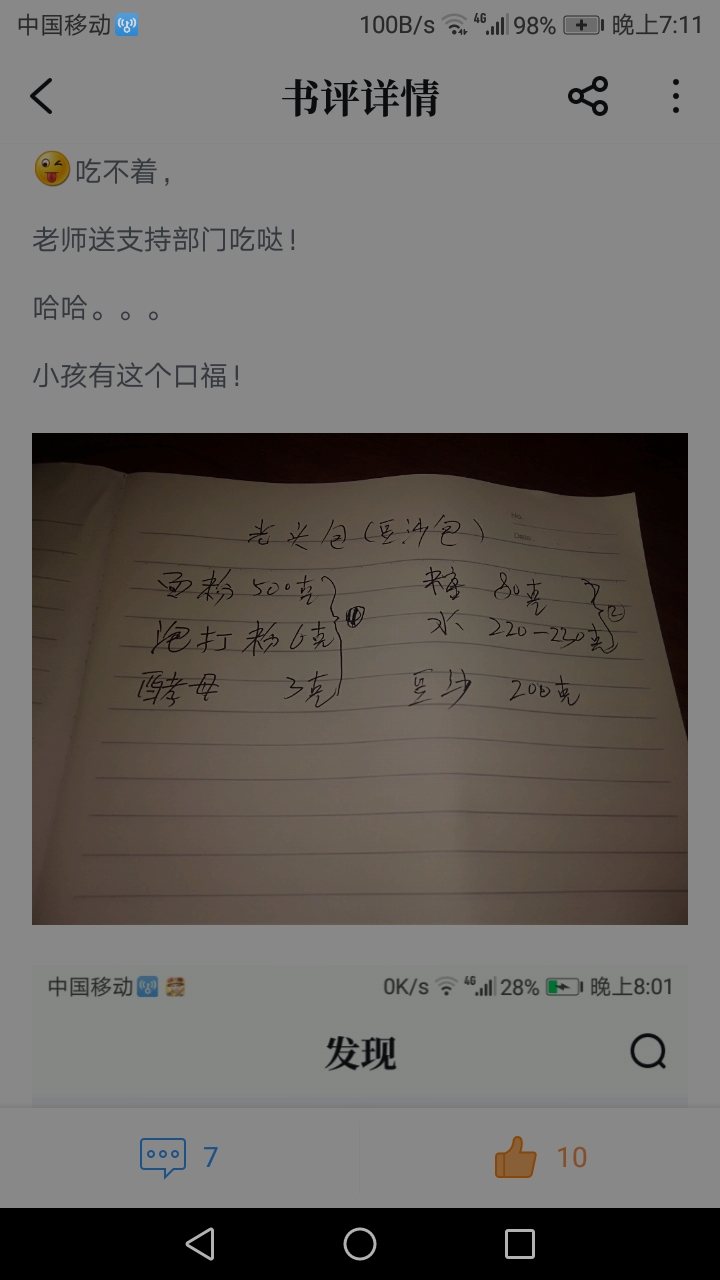 中国移动 100B/s 4G 98% 晚上7:11
书评详情
吃不着，
老师送支持部门吃哒！
哈哈。。。
小孩有这个口福！
老头包（豆沙包）
No.
Date.
面粉 500克 糖 80克
① ②
泡打粉 6克 水 220-230克
酵母 3克 豆沙 200克
中国移动 0K/s 4G 28% 晚上8:01
发现
7 10